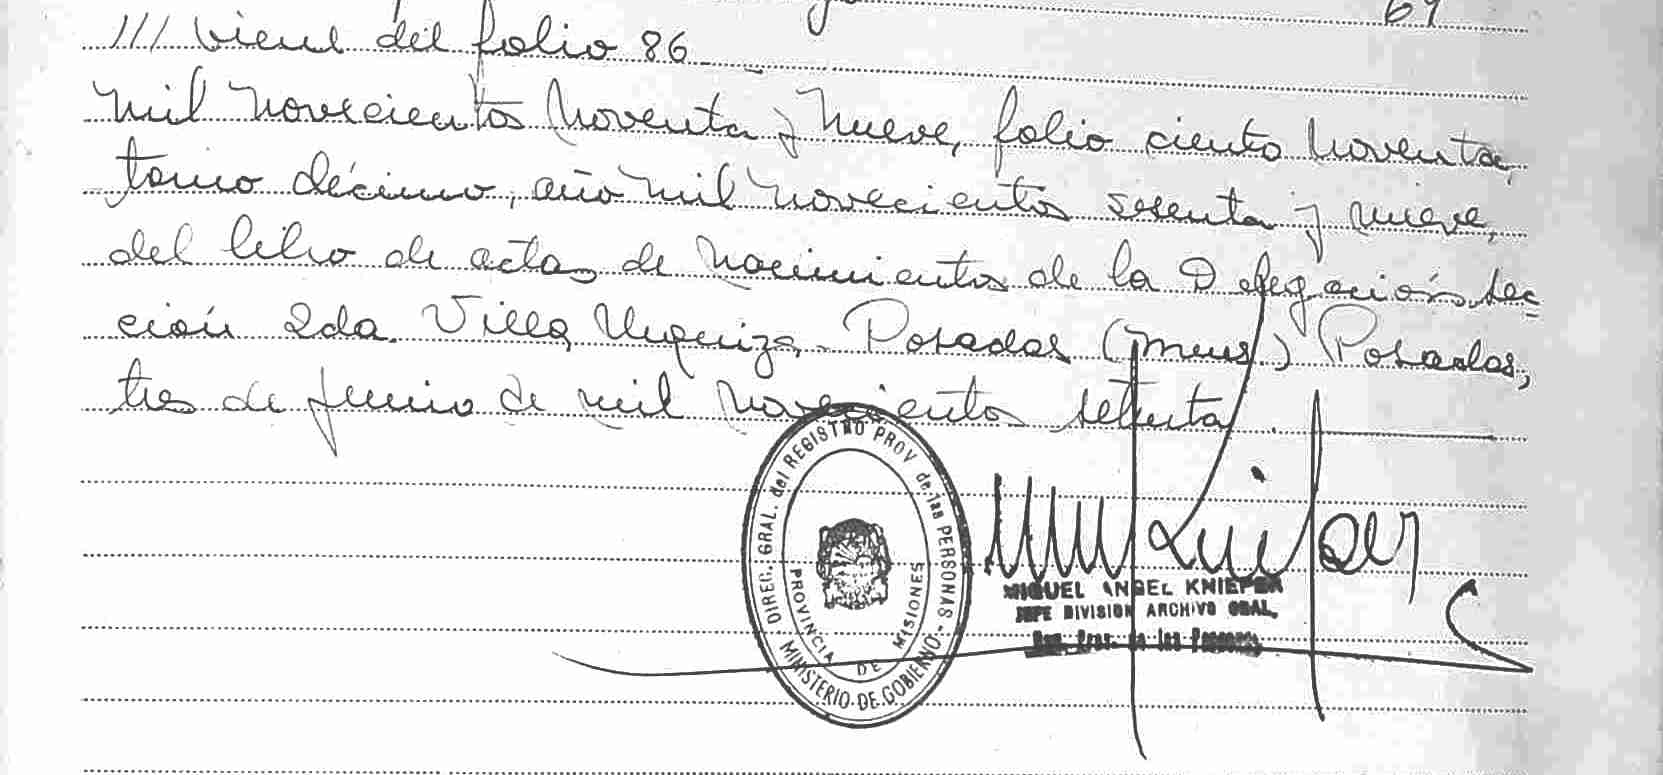 69
/// viene del folio 86
mil novecientos noventa y nueve, folio ciento noventa,
tomo décimo, año mil novecientos sesenta y nueve,
del libro de actas de nacimientos de la Delegación Sec
ción 2da. Villa Urquiza - Posadas (Mnes) Posadas,
tres de junio de mil novecientos setenta
DIREC. GRAL. del REGISTRO PROV. de las PERSONAS
MINISTERIO DE GOBIERNO
PROVINCIA DE MISIONES
MIGUEL ANGEL KNIEPER
JEFE DIVISION ARCHIVO GRAL.